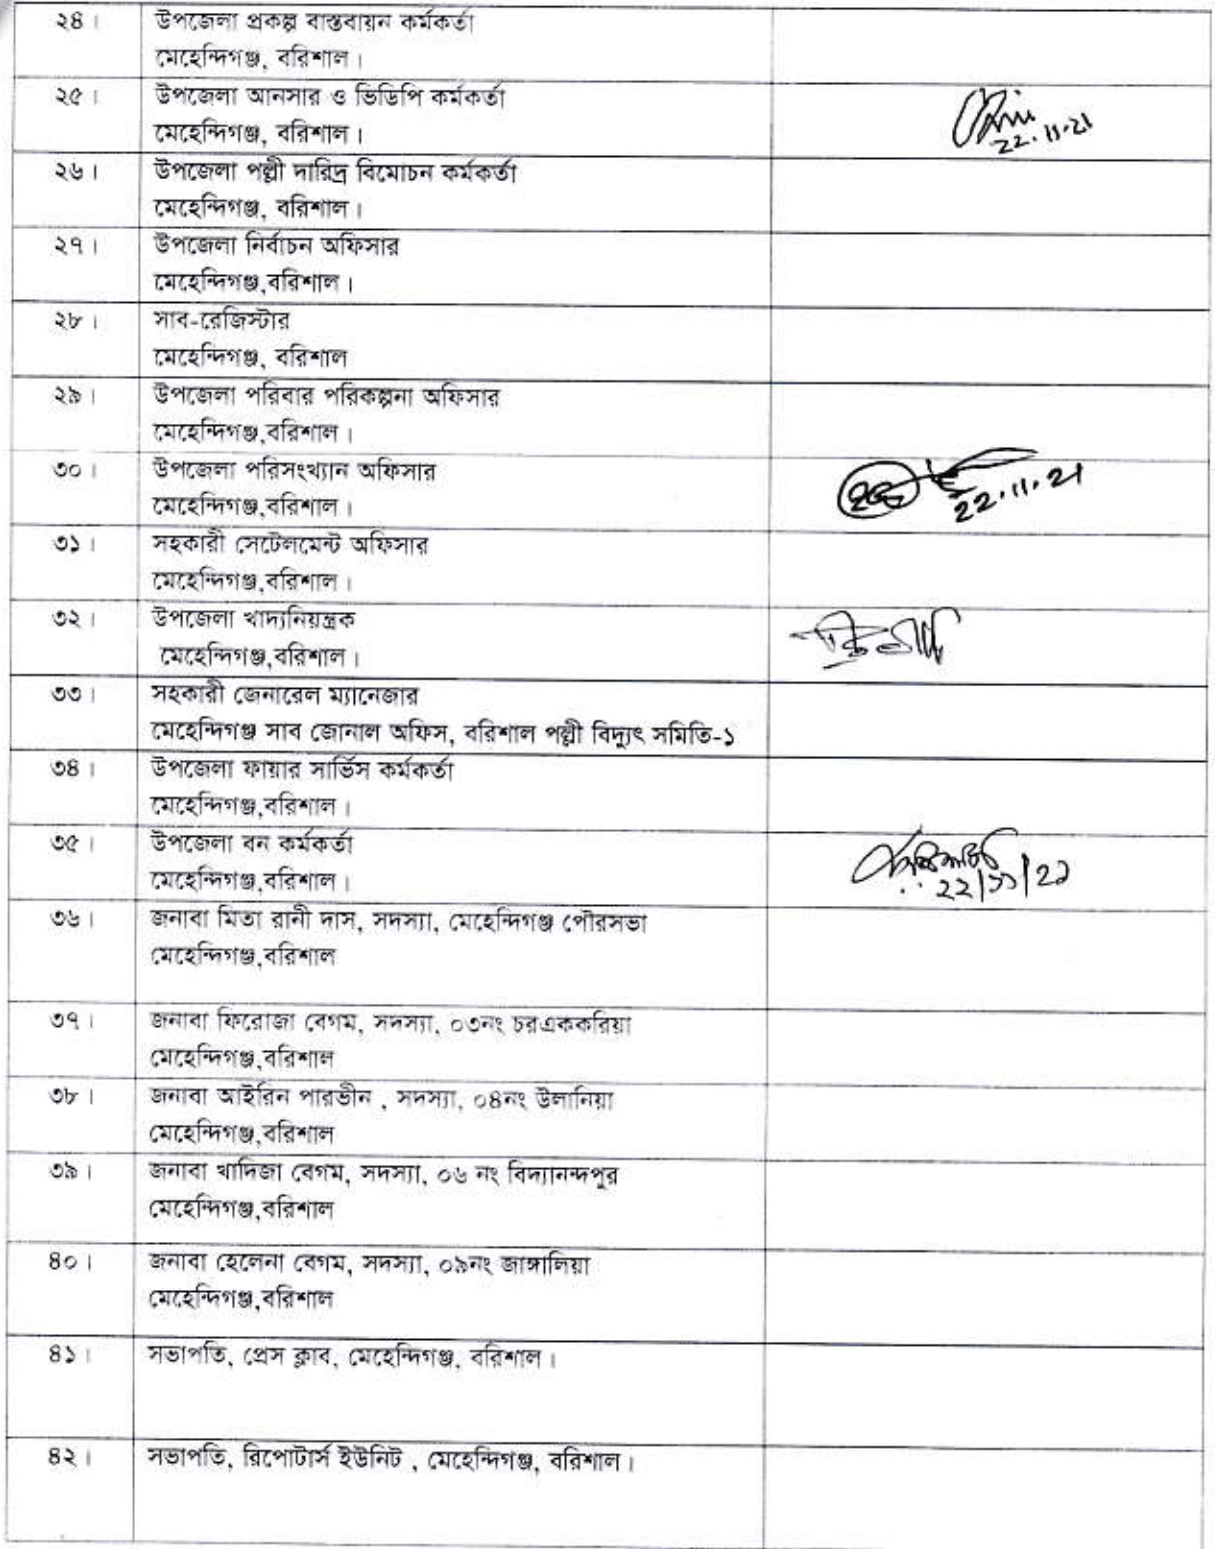 ২৪।
উপজেলা প্রকল্প বাস্তবায়ন কর্মকর্তা
মেহেন্দিগঞ্জ, বরিশাল।
২৫।
উপজেলা আনসার ও ভিডিপি কর্মকর্তা
মেহেন্দিগঞ্জ, বরিশাল।
22.11.21
২৬।
উপজেলা পল্লী দারিদ্র বিমোচন কর্মকর্তা
মেহেন্দিগঞ্জ, বরিশাল।
২৭।
উপজেলা নির্বাচন অফিসার
মেহেন্দিগঞ্জ,বরিশাল।
২৮।
সাব-রেজিস্টার
মেহেন্দিগঞ্জ, বরিশাল
২৯।
উপজেলা পরিবার পরিকল্পনা অফিসার
মেহেন্দিগঞ্জ,বরিশাল।
৩০।
উপজেলা পরিসংখ্যান অফিসার
মেহেন্দিগঞ্জ,বরিশাল।
22.11.21
৩১।
সহকারী সেটেলমেন্ট অফিসার
মেহেন্দিগঞ্জ,বরিশাল।
৩২।
উপজেলা খাদ্যনিয়ন্ত্রক
মেহেন্দিগঞ্জ,বরিশাল।
৩৩।
সহকারী জেনারেল ম্যানেজার
মেহেন্দিগঞ্জ সাব জোনাল অফিস, বরিশাল পল্লী বিদ্যুৎ সমিতি-১
৩৪।
উপজেলা ফায়ার সার্ভিস কর্মকর্তা
মেহেন্দিগঞ্জ,বরিশাল।
৩৫।
উপজেলা বন কর্মকর্তা
মেহেন্দিগঞ্জ,বরিশাল।
২২/১১/২১
৩৬।
জনাবা মিতা রানী দাস, সদস্যা, মেহেন্দিগঞ্জ পৌরসভা
মেহেন্দিগঞ্জ,বরিশাল
৩৭।
জনাবা ফিরোজা বেগম, সদস্যা, ০৩নং চরএককরিয়া
মেহেন্দিগঞ্জ,বরিশাল
৩৮।
জনাবা আইরিন পারভীন , সদস্যা, ০৪নং উলানিয়া
মেহেন্দিগঞ্জ,বরিশাল
৩৯।
জনাবা খাদিজা বেগম, সদস্যা, ০৬ নং বিদ্যানন্দপুর
মেহেন্দিগঞ্জ,বরিশাল
৪০।
জনাবা হেলেনা বেগম, সদস্যা, ০৯নং জাঙ্গালিয়া
মেহেন্দিগঞ্জ,বরিশাল
৪১।
সভাপতি, প্রেস ক্লাব, মেহেন্দিগঞ্জ, বরিশাল।
৪২।
সভাপতি, রিপোটার্স ইউনিট , মেহেন্দিগঞ্জ, বরিশাল।